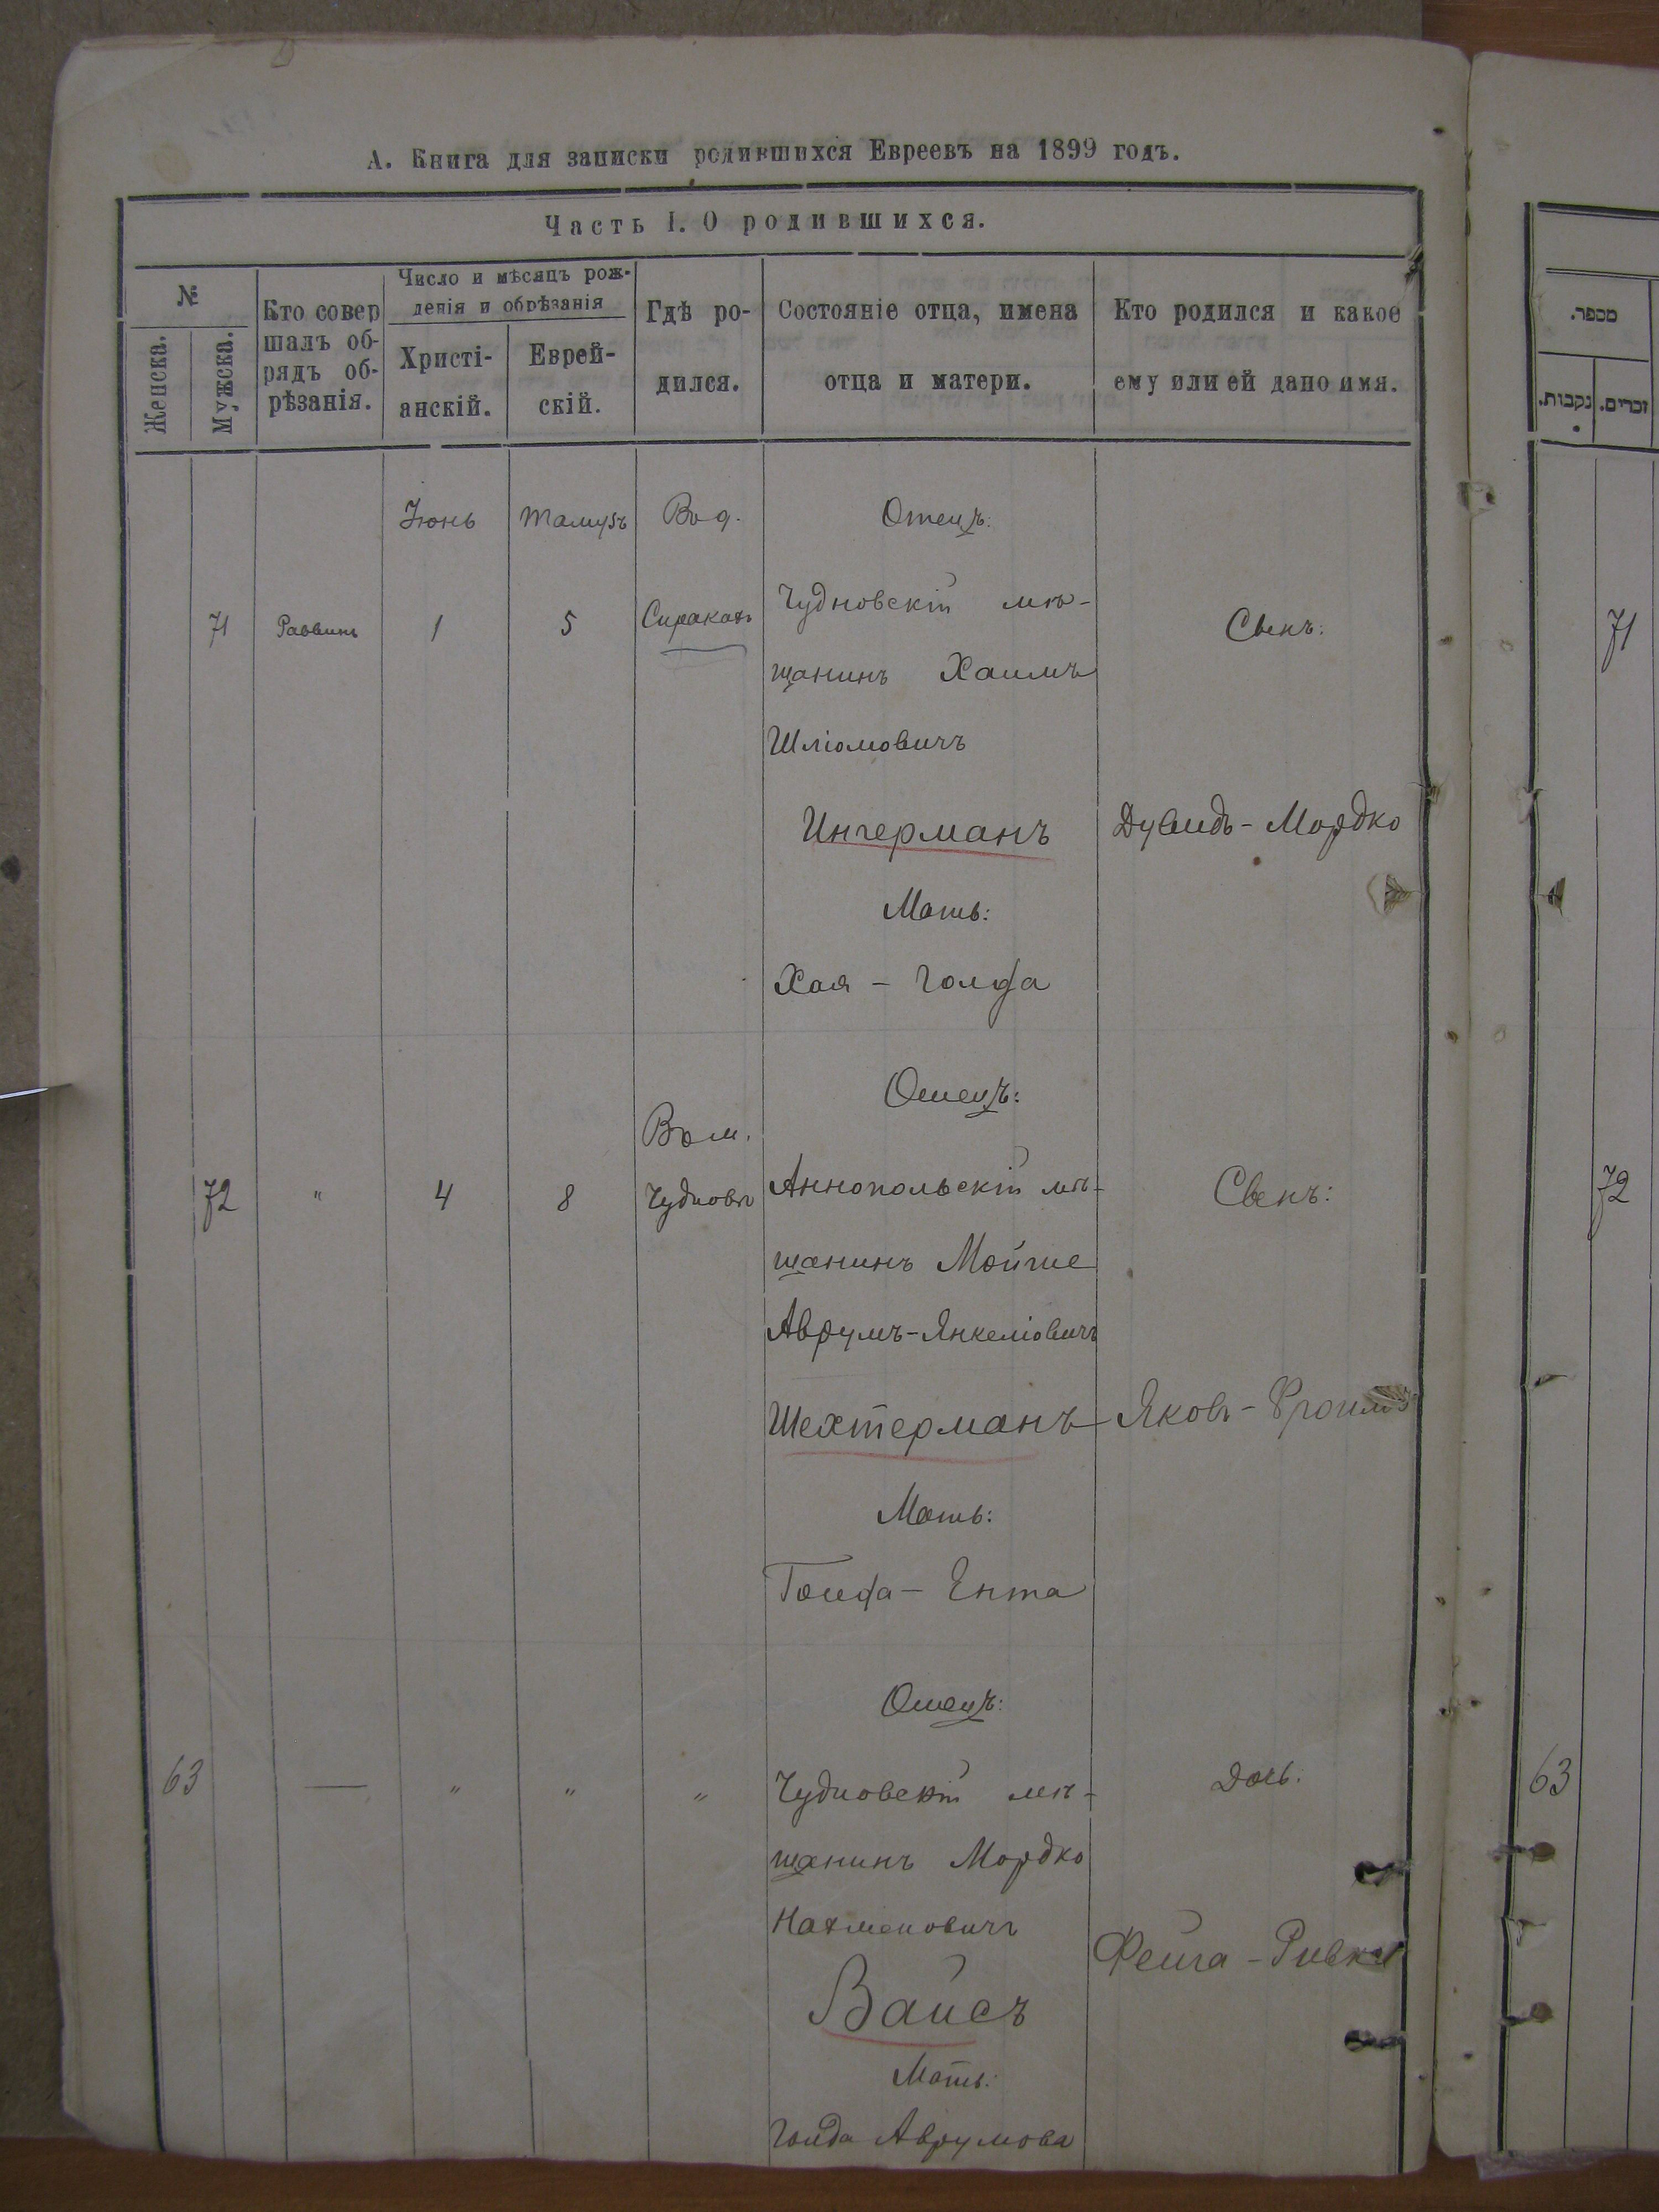 А. Книга для записки родившихся Евреевъ на 1899 годъ.
Часть I. О родившихся.
№
Женска.
Мужска.
Кто совер
шалъ об-
рядъ об-
рѣзанія.
Число и мѣсяцъ рож-
денія и обрѣзанія
Христі-
анскій.
Еврей-
скій.
Гдѣ ро-
дился.
Состояніе отца, имена
отца и матери.
Кто родился и какое
ему или ей дано имя.
מספר.
נקבות.
זכרים.
Іюнь
Тамузъ
Въ д.
Отецъ:
71
Раввинъ
1
5
Чудновскій мѣ-
щанинъ Хаимъ
Шліомовичъ
Ингерманъ
Мать:
Хая - Голда
Сынъ:
Дувидъ - Мордко
71
72
"
4
8
Въ м.
Чудновѣ
Отецъ:
Аннопольскій мѣ-
щанинъ Мойше
Аврумъ-Янкеліовичъ
Шехтерманъ
Мать:
Ента
Сынъ:
Яковъ - Фроимъ
72
63
—
"
"
"
Отецъ:
Чудновскій мѣ-
щанинъ Мордко
Нахмановичъ
Вайсъ
Мать:
Аврумова
Дочь:
Фейга - Ривка
63